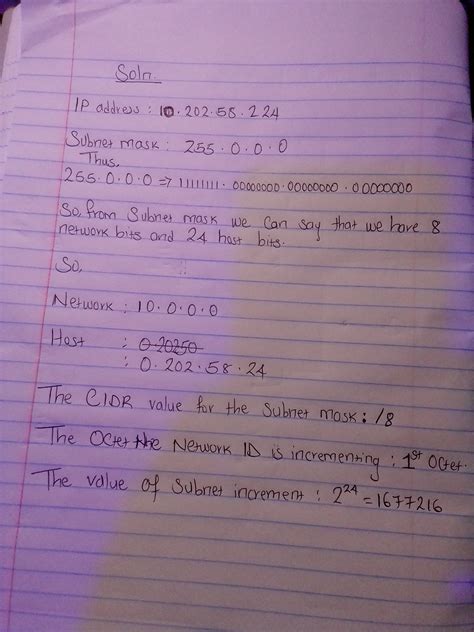 Soln.
IP address : 10.202.58.224
Subnet mask : 255.0.0.0
Thus,
255.0.0.0 => 11111111.00000000.00000000.00000000
So, from Subnet mask we can say that we have 8
network bits and 24 host bits.
So,
Network : 10.0.0.0
Host : 0.20250
: 0.202.58.24
The CIDR value for the Subnet mask : /8
The Octet the Network ID is incrementing : 1st Octet.
The value of Subnet increment : 2^24 = 1677216